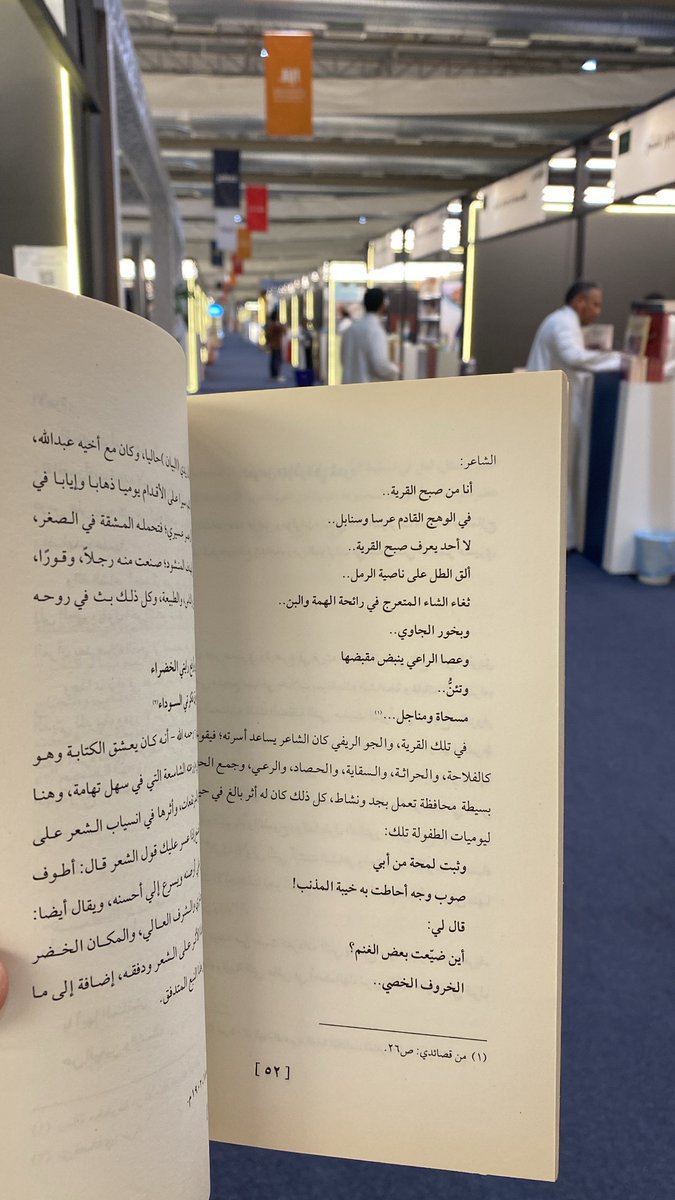 الشاعر:
أنا من صبح القرية..
في الوهج القادم عرسا وسنابل..
لا أحد يعرف صبح القرية..
ألق الطل على ناصية الرمل..
ثغاء الشاء المتعرج في رائحة الهمة والبن..
وبخور الجاوي..
وعصا الراعي ينبض مقبضها
وتئنُّ..
مسحاة ومناجل...(١)
في تلك القرية، والجو الريفي كان الشاعر يساعد أسرته؛ فيقو
كالفلاحة، والحراثة، والسقاية، والحصاد، والرعي، وجمع
بسيطة محافظة تعمل بجد ونشاط، كل ذلك كان له أثر بالغ في
ليوميات الطفولة تلك:
وثبت لمحة من أبي
صوب وجه أحاطت به خيبة المذنب!
قال لي:
أين ضيّعت بعض الغنم؟
الخروف الخصي..
(١) من قصائدي: ص٢٦.
[٥٢]
حاليا، وكان مع أخيه عبدالله،
على الأقدام يوميا ذهابا وإيابا في
فتحمله المشقة في الصغر،
المنشود؛ صنعت منه رجلاً، وقورًا،
والطبيعة، وكل ذلك بث في روحه
الخضراء
في السوداء(٢)
رحمه الله - أنه كان يعشق الكتابة وهو
الشاسعة التي في سهل تهامة، وهنا
وأثرها في انسياب الشعر على
عسر عليك قول الشعر قال: أطوف
ويسرع إلي أحسنه، ويقال أيضا:
والشرف العالي، والمكان الخضر
على الشعر ودفقه، إضافة إلى ما
المتدفق.